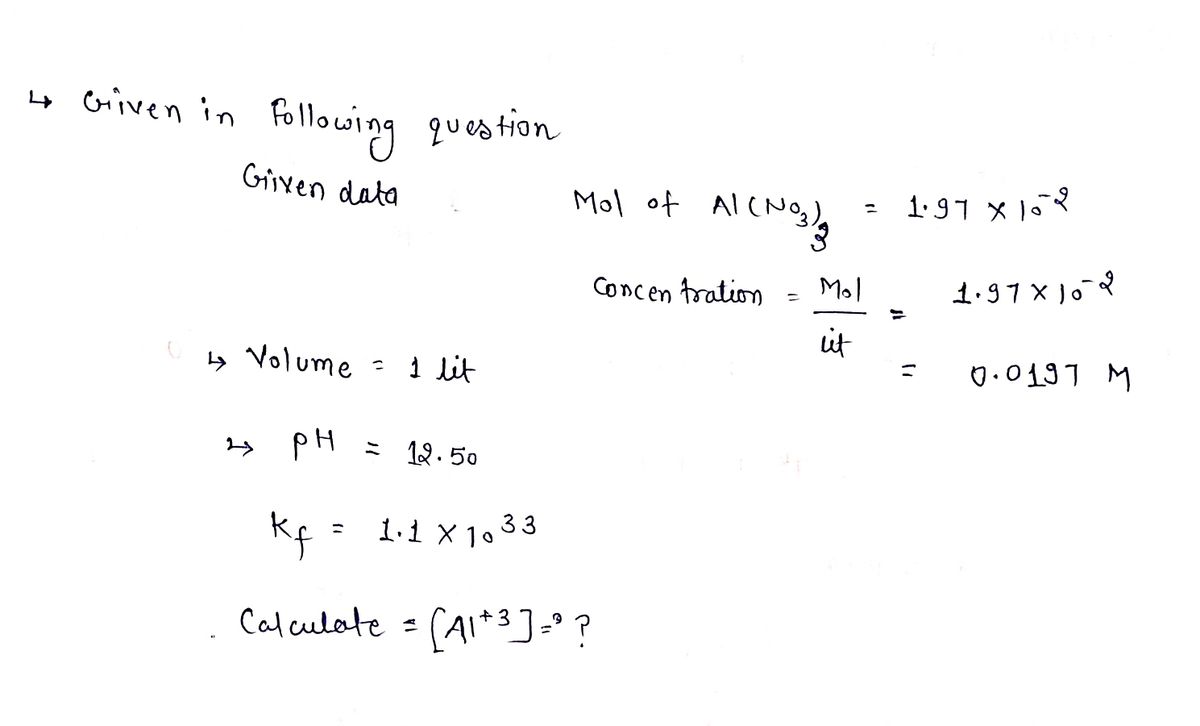 ↳ Given in Following question
Given data
Mol of Al(NO₃)₃ = 1.97 × 10⁻²
Concentration = Mol / lit = 1.97 × 10⁻²
= 0.0197 M
↳ Volume = 1 lit
↳ pH = 12.50
Kf = 1.1 × 10³³
Calculate = [Al⁺³] = ?